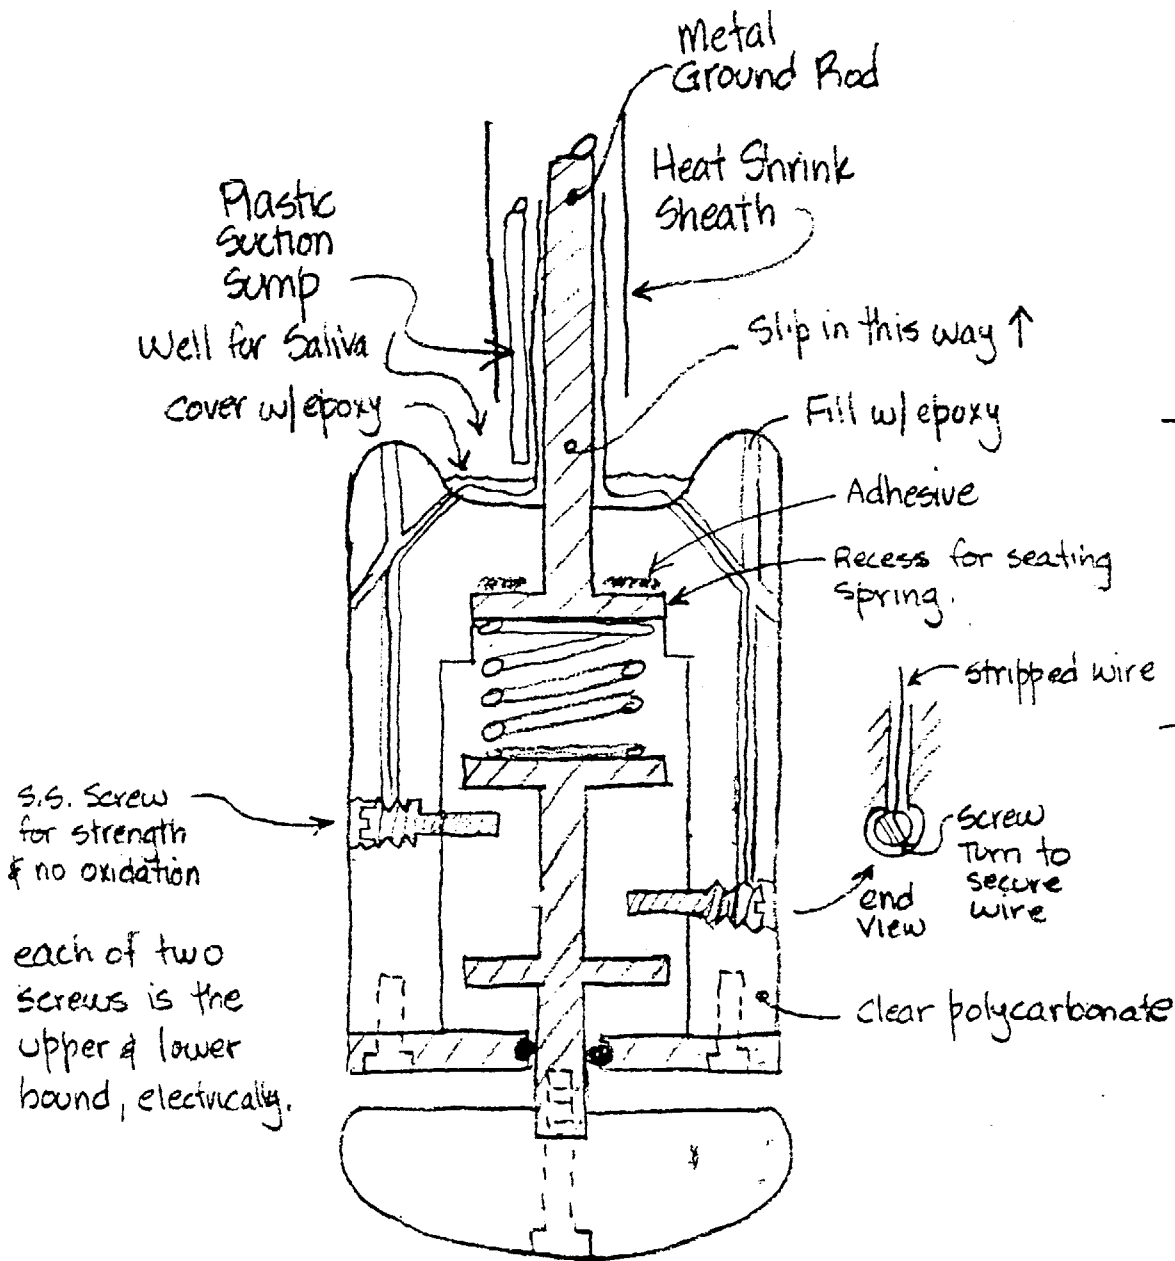 Metal
Ground Rod
Heat Shrink
Sheath
Plastic
Suction
Sump
Well for Saliva
cover w/epoxy
Slip in this way ↑
Fill w/epoxy
Adhesive
Recess for seating
spring.
stripped wire
screw
Turn to
secure
wire
end
view
S.S. Screw
for strength
& no oxidation
each of two
screws is the
upper & lower
bound, electrically.
Clear polycarbonate